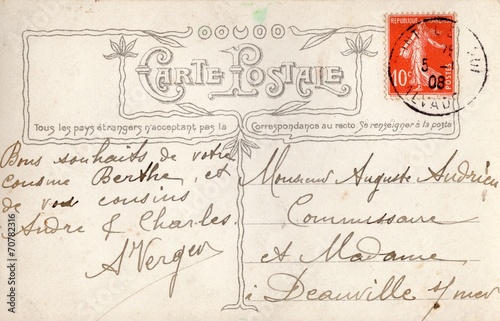 CARTE POSTALE
Tous les pays étrangers n'acceptant pas la Correspondance au recto Se renseigner à la poste
REPUBLIQUE FRANÇAISE
10c
POSTES
08
Bons souhaits de votre
cousine Berthe, et
de vos cousins
Andre & Charles.
A Verger
Monsieur Auguste Andrieu
Commissaire
et Madame
à Deauville s/mer